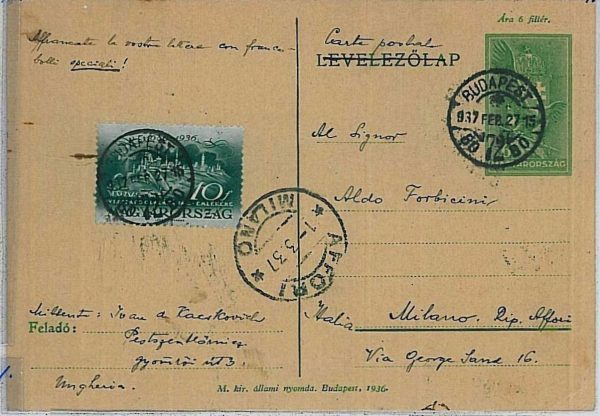 Ára 6 fillér.
Affrancate le vostre lettere con franco-
bolli speciali!
Carte postale
LEVELEZŐLAP
BUDAPEST
937 FEB. 27 15
72
MAGYARORSZÁG
Al Signor
BUDAPEST
1936
10f
MAGYARORSZÁG
Aldo Forbicini
MILANO
1-3.37
* AFFORI *
Mittente: Ivan de
Feladó:
gyömrői út 3.
Ungheria.
Italia Milano. Rip. Affori
Via George Sand 16.
M. kir. állami nyomda. Budapest, 1936.